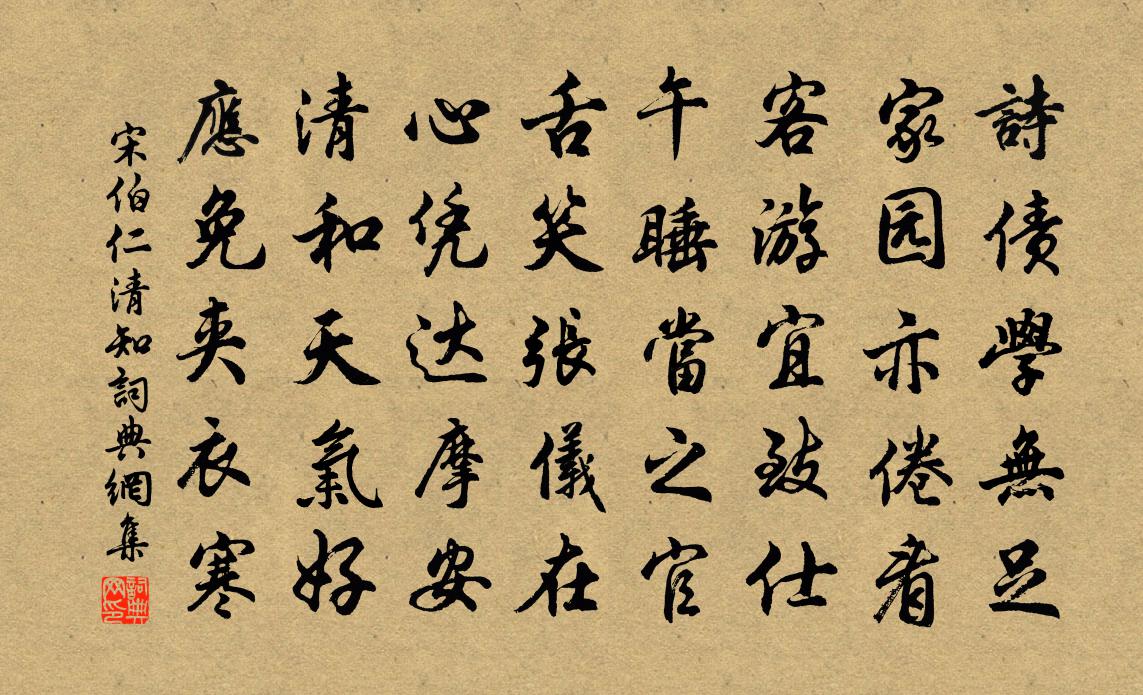 詩債學無足
家园亦倦看
客游宜致仕
午睡當之官
舌笑張儀在
心凭达摩安
清和天氣好
應免夹衣寒
宋伯仁清知詞典網集
詞典网印